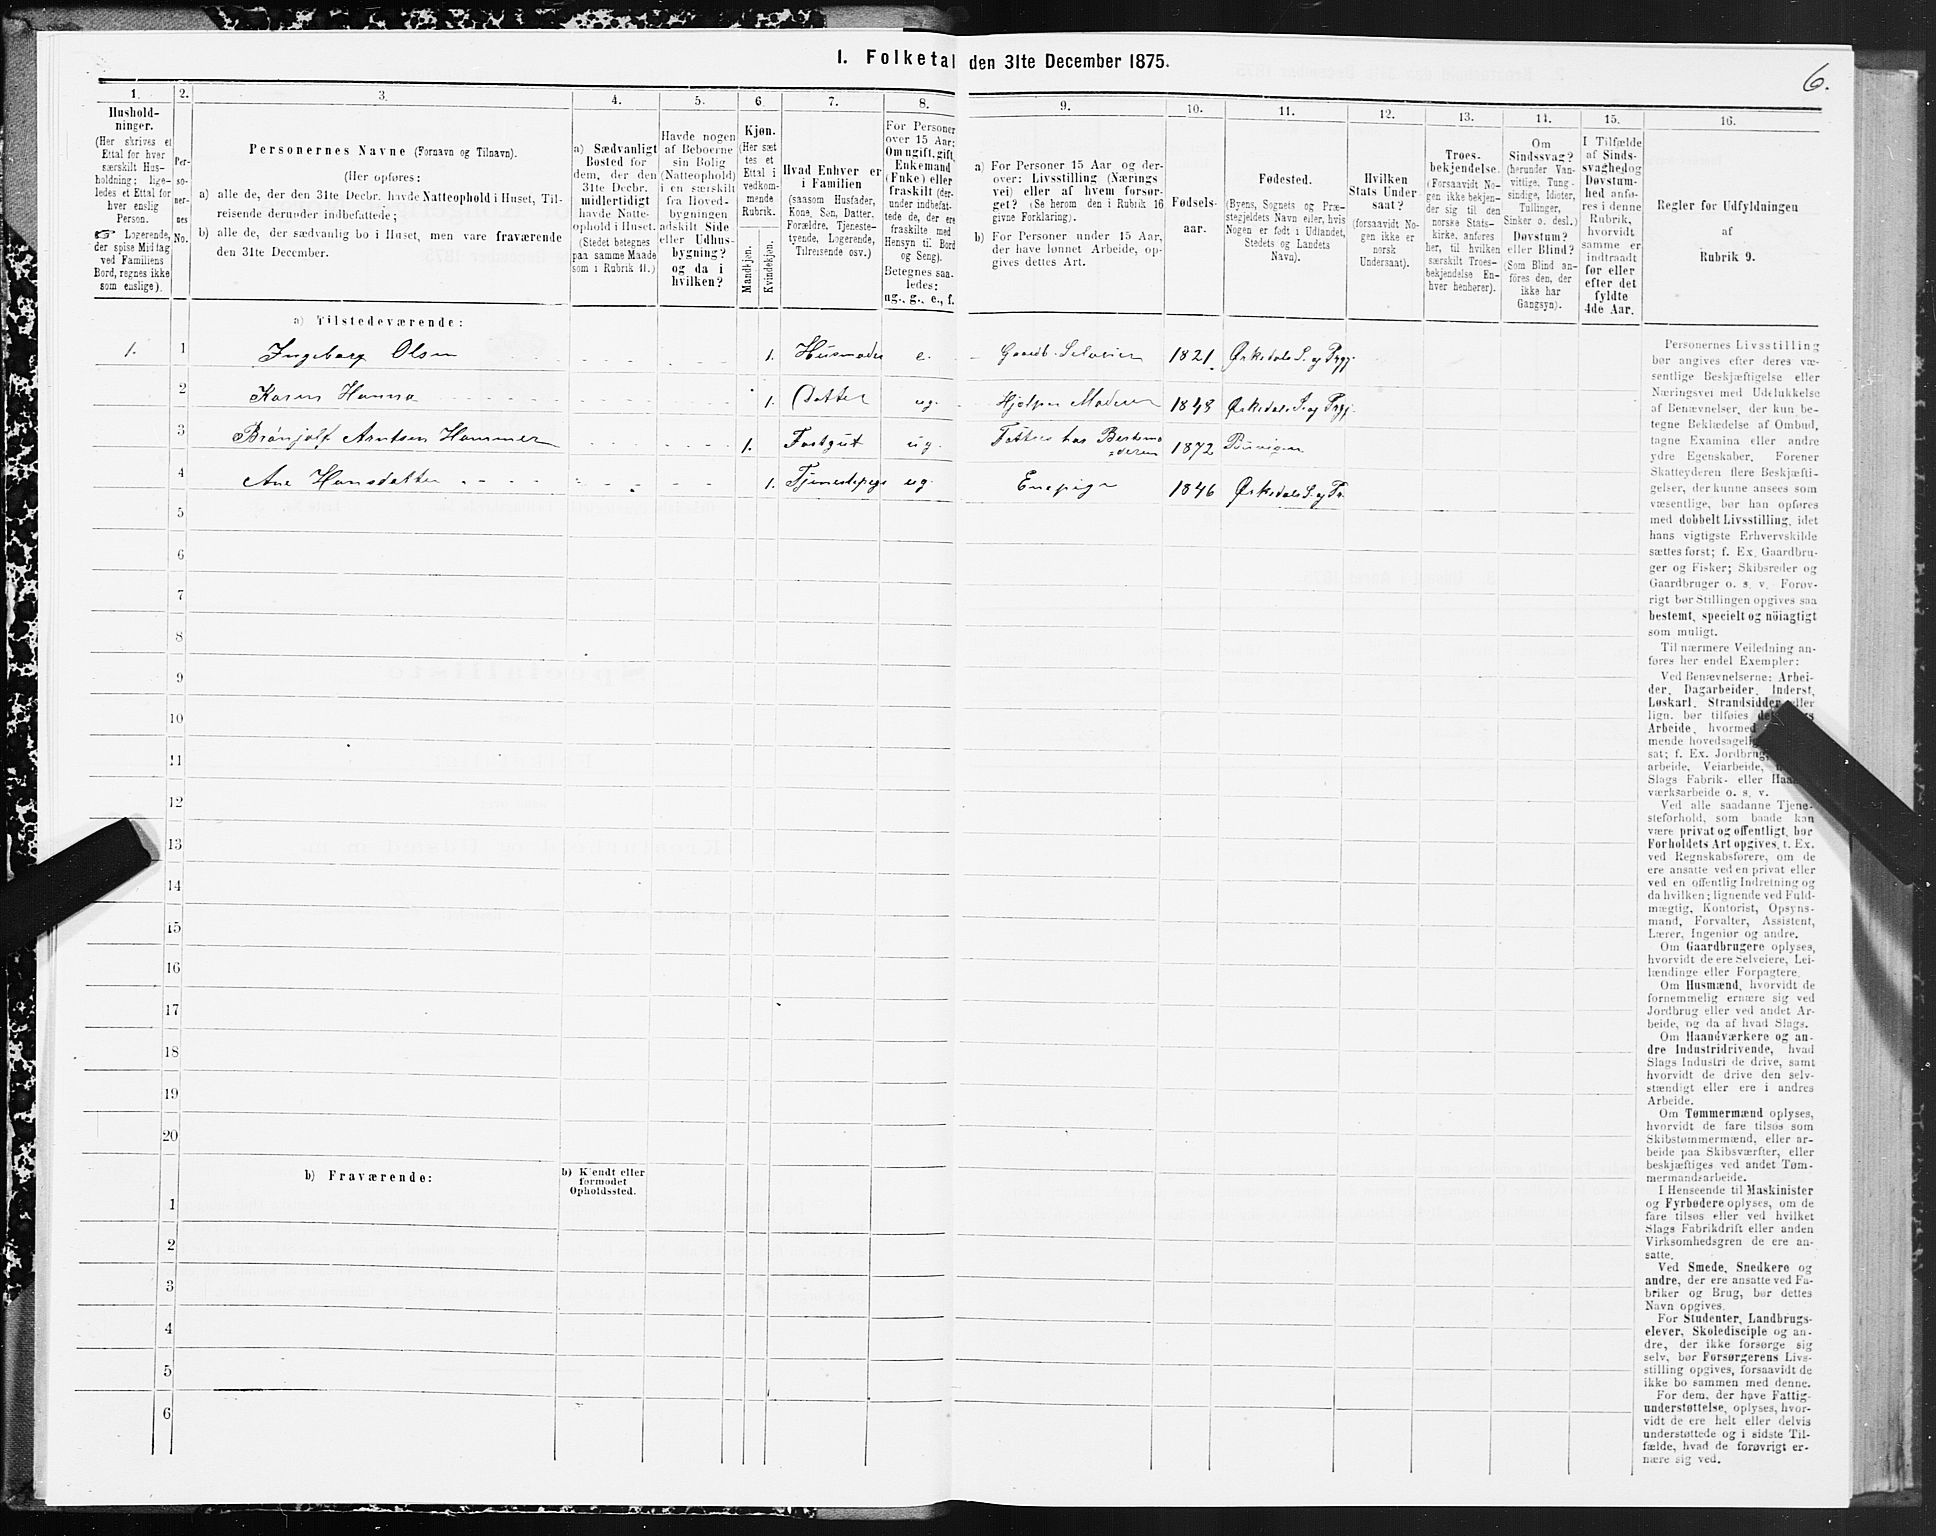 I. Folketal den 31te December 1875.
6.
1.
Hushold-
ninger.
(Her skrives et
Ettal for hver
særskilt Hus-
holdning; lige-
ledes et Ettal for
hver enslig
Person.
☞ Logerende,
der spise Middag
ved Familiens
Bord, regnes ikke
som enslige).
2.
Per-
so-
ner-
nes
No.
3.
Personernes Navne (Fornavn og Tilnavn).
(Her opføres:
a) alle de, der den 31te Decbr. havde Natteophold i Huset, Til-
reisende derunder indbefattede;
b) alle de, der sædvanlig bo i Huset, men vare fraværende
den 31te December.
4.
a) Sædvanligt
Bosted for
dem, der den
31te Decbr.
midlertidigt
havde Natte-
ophold i Huset.
(Stedet betegnes
paa samme Maade
som i Rubrik 11.)
5.
Havde nogen
af Beboerne
sin Bolig
(Natteophold)
i en særskilt
fra Hoved-
bygningen
adskilt Side
eller Udhus-
bygning?
og da i
hvilken?
6
Kjøn.
(Her sæt
tes et
Ettal i
vedkom-
mende
Rubrik.
Mandkjøn.
Kvindekjøn.
7.
Hvad Enhver er
i Familien
(saasom Husfader,
Kone, Søn, Datter,
Forældre, Tjeneste-
tyende, Logerende,
Tilreisende osv.)
8.
For Personer
over 15 Aar:
Om ugift, gift,
Enkemand
(Enke) eller
fraskilt (der-
under indbefat-
tede de, der ere
fraskilte med
Hensyn til Bord
og Seng).
Betegnes saa-
ledes:
ug., g., e., f.
9.
a) For Personer 15 Aar og der-
over: Livsstilling (Nærings
vei) eller af hvem forsør-
get? (Se herom den i Rubrik 16
givne Forklaring).
b) For Personer under 15 Aar,
der have lønnet Arbeide, op-
gives dettes Art.
10.
Fødsels-
aar.
11.
Fødested.
(Byens, Sognets og Præ-
stegjeldets Navn eller, hvis
Nogen er født i Udlandet,
Stedets og Landets
Navn).
12.
Hvilken
Stats Under
saat?
(forsaavidt No-
gen ikke er
norsk
Undersaat).
13.
Troes-
bekjendelse.
(Forsaavidt No-
gen ikke bekjen-
der sig til den
norske Stats-
kirke, anføres
her, til hvilken
særskilt Troes-
bekjendelse En-
hver henhører).
14.
Om
Sindssvag?
(herunder Van-
vittige, Tung-
sindige, Idioter,
Tullinger,
Sinker o. desl.)
Døvstum?
eller Blind?
(Som Blind an-
føres den, der
ikke har
Gangsyn).
15.
I Tilfælde
af Sinds-
svaghed og
Døvstum-
hed anfø-
res i denne
Rubrik,
hvorvidt
samme er
indtraadt
før eller
efter det
fyldte
4de Aar.
16.
Regler for Udfyldningen
af
Rubrik 9.
a) Tilstedeværende:
1. 1 Ingeborg Olsen 1. Husmoder e. Gaardb. Selveier 1821 Ørkedals S. og Prgj.
2 Karen Hanna 1. Datter ug. Hjelper Moderen 1843 Ørkedals S. og Prgj.
3 Brønjolf Arntsen Hammer 1. Fostgut ug. Fostres hos Bestemo=
deren 1872
4 Ane Hansdatter 1. Tjenestepige ug. 1846 Ørkedals S. og Pr.
5
6
7
8
9
10
11
12
13
14
15
16
17
18
19
20
b) Fraværende:
b) Kjendt eller
formodet
Opholdssted.
1
2
3
4
5
6
Personernes Livsstilling
bør angives efter deres væ-
sentlige Beskjæftigelse eller
Næringsvei med Udelukkelse
af Benævnelser, der kun be-
tegne Beklædelse af Ombud,
tagne Examina eller andre
ydre Egenskaber. Forener
Skatteyderen flere Beskjæfti-
gelser, der kunne ansees som
væsentlige, bør han opføres
med dobbelt Livsstilling, idet
hans vigtigste Erhvervskilde
sættes først; f. Ex. Gaardbru-
ger og Fisker; Skibsreder og
Gaardbruger o. s. v. Forøv-
rigt bør Stillingen opgives saa
bestemt, specielt og nöiagtigt
som muligt.
Til nærmere Veiledning an-
føres her endel Exempler:
Ved Benævnelserne: Arbei-
der, Dagarbeider, Inderst,
Løskarl, Strandsidder eller
lign. bør tilføies
Arbeide, hvormed
mende hovedsagelig
sat; f. Ex. Jordbrug,
arbeide, Veiarbeide,
Slags Fabrik- eller Haand-
værksarbeide o. s. v.
Ved alle saadanne Tjene-
steforhold, som baade kan
være privat og offentligt, bør
Forholdets Art opgives, f. Ex.
ved Regnskabsførere, om de
ere ansatte ved en privat eller
ved en offentlig Indretning og
da hvilken; lignende ved Fuld-
mægtig, Kontorist, Opsyns-
mand, Forvalter, Assistent,
Lærer, Ingeniør og andre.
Om Gaardbrugere oplyses,
hvorvidt de ere Selveiere, Lei-
lændinge eller Forpagtere.
Om Husmænd, hvorvidt de
fornemmelig ernære sig ved
Jordbrug eller ved andet Ar-
beide, og da af hvad Slags.
Om Haandværkere og an-
dre Industridrivende, hvad
Slags Industri de drive, samt
hvorvidt de drive den selv-
stændigt eller ere i andres
Arbeide.
Om Tømmermænd oplyses,
hvorvidt de fare tilsøs som
Skibstømmermænd, eller ar-
beide paa Skibsværfter, eller
beskjæftiges ved andet Tøm-
mermandsarbeide.
I Henseende til Maskinister
og Fyrbødere oplyses, om de
fare tilsøs eller ved hvilket
Slags Fabrikdrift eller anden
Virksomhedsgren de ere an-
satte.
Ved Smede, Snedkere og
andre, der ere ansatte ved Fa-
briker og Brug, bør dettes
Navn opgives.
For Studenter, Landbrugs-
elever, Skoledisciple og an-
dre, der ikke forsørge sig
selv, bør Forsørgerens Livs-
stilling opgives, forsaavidt de
ikke bo sammen med denne.
For dem, der have Fattig-
understøttelse, oplyses, hvor-
vidt de ere helt eller delvis
understøttede og i sidste Til-
fælde, hvad de forøvrigt er-
nære sig ved.